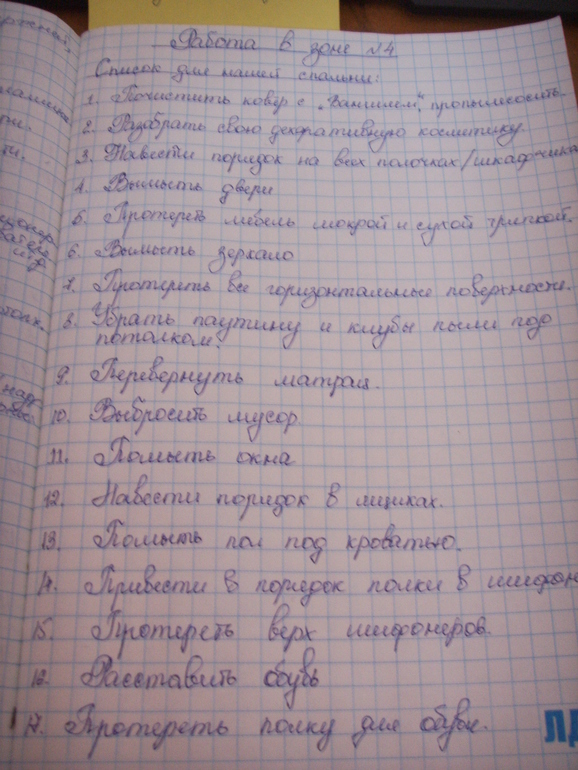 Работа в зоне №4
Список для нашей спальни:
1. Почистить ковёр с „Ванишем", пропылесосить.
2. Разобрать свою декоративную косметику.
3. Навести порядок на всех полочках/шкафчика
4. Вымыть двери
5. Протереть мебель мокрой и сухой тряпкой.
6. Вымыть зеркало
7. Протереть все горизонтальные поверхности.
8. Убрать паутину и клубы пыли под
потолком.
9. Перевернуть матрац.
10. Выбросить мусор
11. Помыть окна
12. Навести порядок в ящиках.
13. Помыть пол под кроватью.
14. Привести в порядок полки в шифон
15. Протереть верх шифонеров.
16. Расставить обувь
17. Протереть полку для обуви.